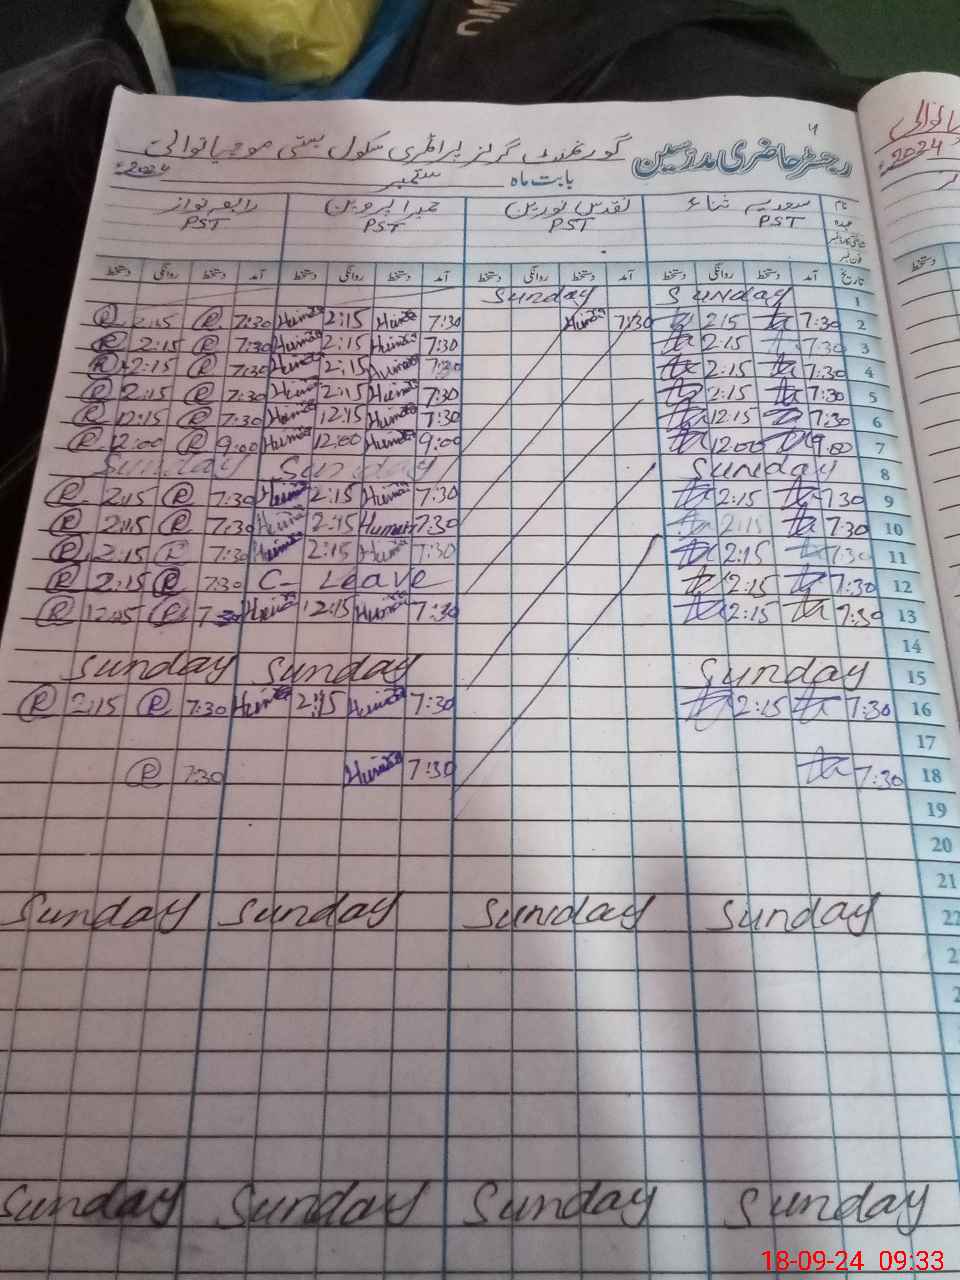 رجسٹر حاضری مدرسین گورنمنٹ گرلز پرائمری سکول بستی
بابت ماہ ستمبر 2024ء
نام سعدیہ ثناء تقدس نورین حمیرا پروین رابعہ نواز
عہدہ PST PST PST PST
تاریخ آمد دستخط روانگی دستخط آمد دستخط روانگی دستخط آمد دستخط روانگی دستخط آمد دستخط روانگی دستخط
1 Sunday Sunday
2 7:30 2:15 7:30 Humera 7:30 Humera 2:15 Humera 7:30 R 2:15 R
3 7:30 2:15 7:30 Humera 2:15 Humera 7:30 R 2:15 R
4 7:30 2:15 7:30 Humera 2:15 Humera 7:30 R 2:15 R
5 7:30 2:15 7:30 Humera 2:15 Humera 7:30 R 2:15 R
6 7:30 12:15 7:30 Humera 12:15 Humera 7:30 R 12:15 R
7 9:00 12:00 9:00 Humera 12:00 Humera 9:00 R 12:00 R
8 Sunday Sunday Sunday
9 7:30 2:15 7:30 Humera 2:15 Humera 7:30 R 2:15 R
10 7:30 2:15 7:30 Humera 2:15 Humera 7:30 R 2:15 R
11 7:30 2:15 7:30 Humera 2:15 Humera 7:30 R 2:15 R
12 7:30 2:15 C- Leave 7:30 R 2:15 R
13 7:30 12:15 7:30 Humera 12:15 Humera 7:30 R 12:15 R
14
15 Sunday Sunday Sunday
16 7:30 2:15 7:30 Humera 2:15 Humera 7:30 R 2:15 R
17
18 7:30 7:30 Humera 7:30 R
19
20
21
22 Sunday Sunday Sunday Sunday
Sunday Sunday Sunday Sunday
2024
18-09-24 09:33